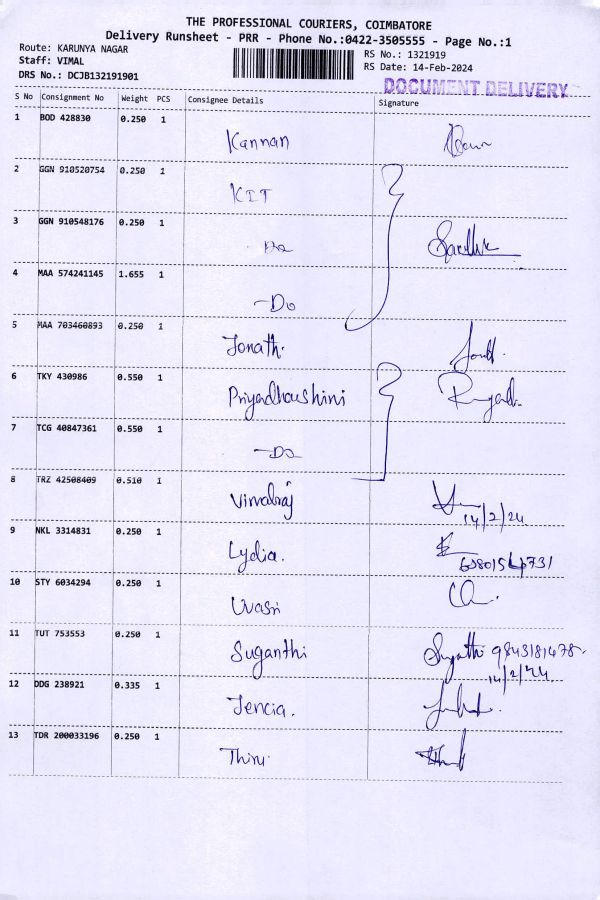 THE PROFESSIONAL COURIERS, COIMBATORE
Delivery Runsheet - PRR - Phone No.:0422-3505555 - Page No.:1
Route: KARUNYA NAGAR
RS No.: 1321919
Staff: VIMAL
RS Date: 14-Feb-2024
DRS No.: DCJB132191901
DOCUMENT DELIVERY
S No Consignment No Weight PCS Consignee Details Signature
1 BOD 428830 0.250 1
Kannan
2 GGN 910520754 0.250 1
KIT
3 GGN 910548176 0.250 1
Do
4 MAA 574241145 1.655 1
-Do
5 MAA 703460893 0.250 1
Jonath.
6 TKY 430986 0.550 1
Priyadharshini
7 TCG 40847361 0.550 1
-Do
8 TRZ 42508409 0.510 1
Vimalraj
14/2/24
9 NKL 3314831 0.250 1
Lydia.
10 STY 6034294 0.250 1
11 TUT 753553 0.250 1
Suganthi 9843181478.
14/2/24
12 DDG 238921 0.335 1
Jencia.
13 TDR 200033196 0.250 1
Thiru.